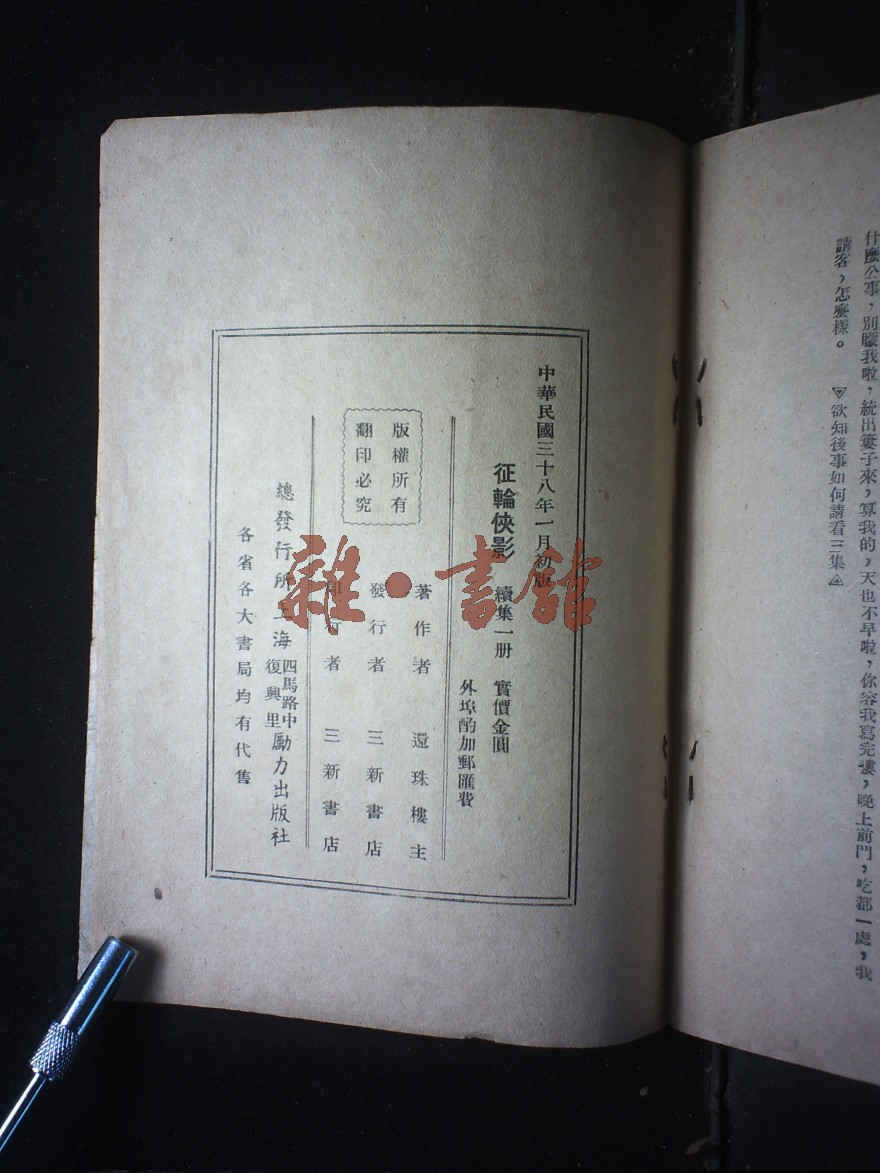 什麼公事，別矇我啦，統出簍子來，算我的，天也不早啦，你容我寫完嘍，晚上前門，吃都一處，我
請客，怎麼樣。
▽欲知後事如何請看三集△
中華民國三十八年一月初版
征輪俠影 續集一册 實價金圓
外埠酌加郵匯費
著作者 還珠樓主
發行者 三新書店
印行者 三新書店
版權所有
翻印必究
總發行所上海四馬路中復興里勵力出版社
各省各大書局均有代售
雜·書館